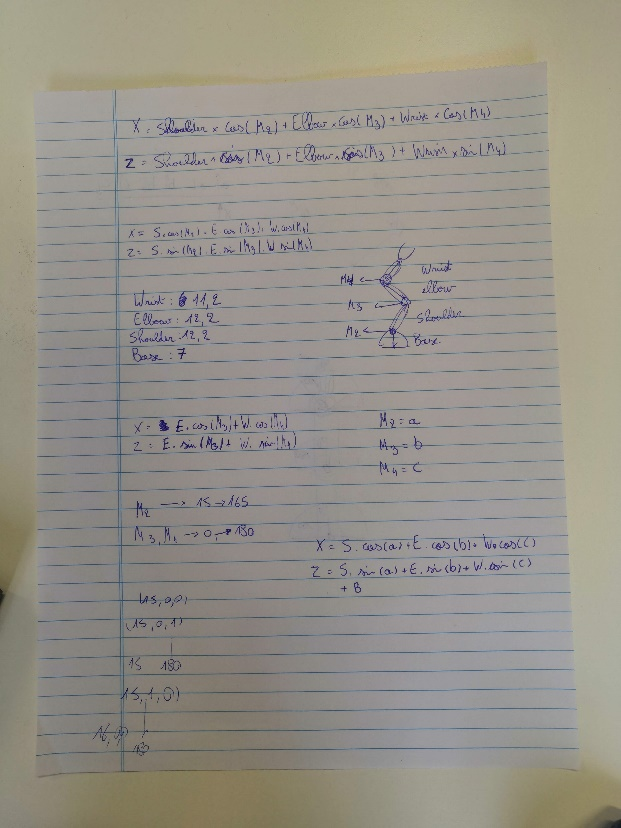 X = Shoulder x cos(M2) + Elbow x cos(M3) + Wrist x cos(M4)
Z = Shoulder x sin(M2) + Elbow x sin(M3) + Wrist x sin(M4)
X = S.cos(M2). E cos(M3). W.cos(M4)
Z = S.sin(M2). E. sin(M3). W sin(M4)
Wrist : 11,2
Elbow : 12,2
Shoulder 12,2
Base : 7
M4
M3
M2
Wrist
elbow
Shoulder
Base
X = E. cos(M3) + W. cos(M4)
Z = E. sin(M3) + W. sin(M4)
M2 = a
M3 = b
M4 = c
M2 → 15 → 165
M3, M4 → 0, → 180
X = S. cos(a) + E. cos(b) + W. cos(C)
Z = S. sin(a) + E. sin(b) + W. sin(C)
+ B
(15,0,0)
(15,0,1)
15 180
15,1,0)
16,
180